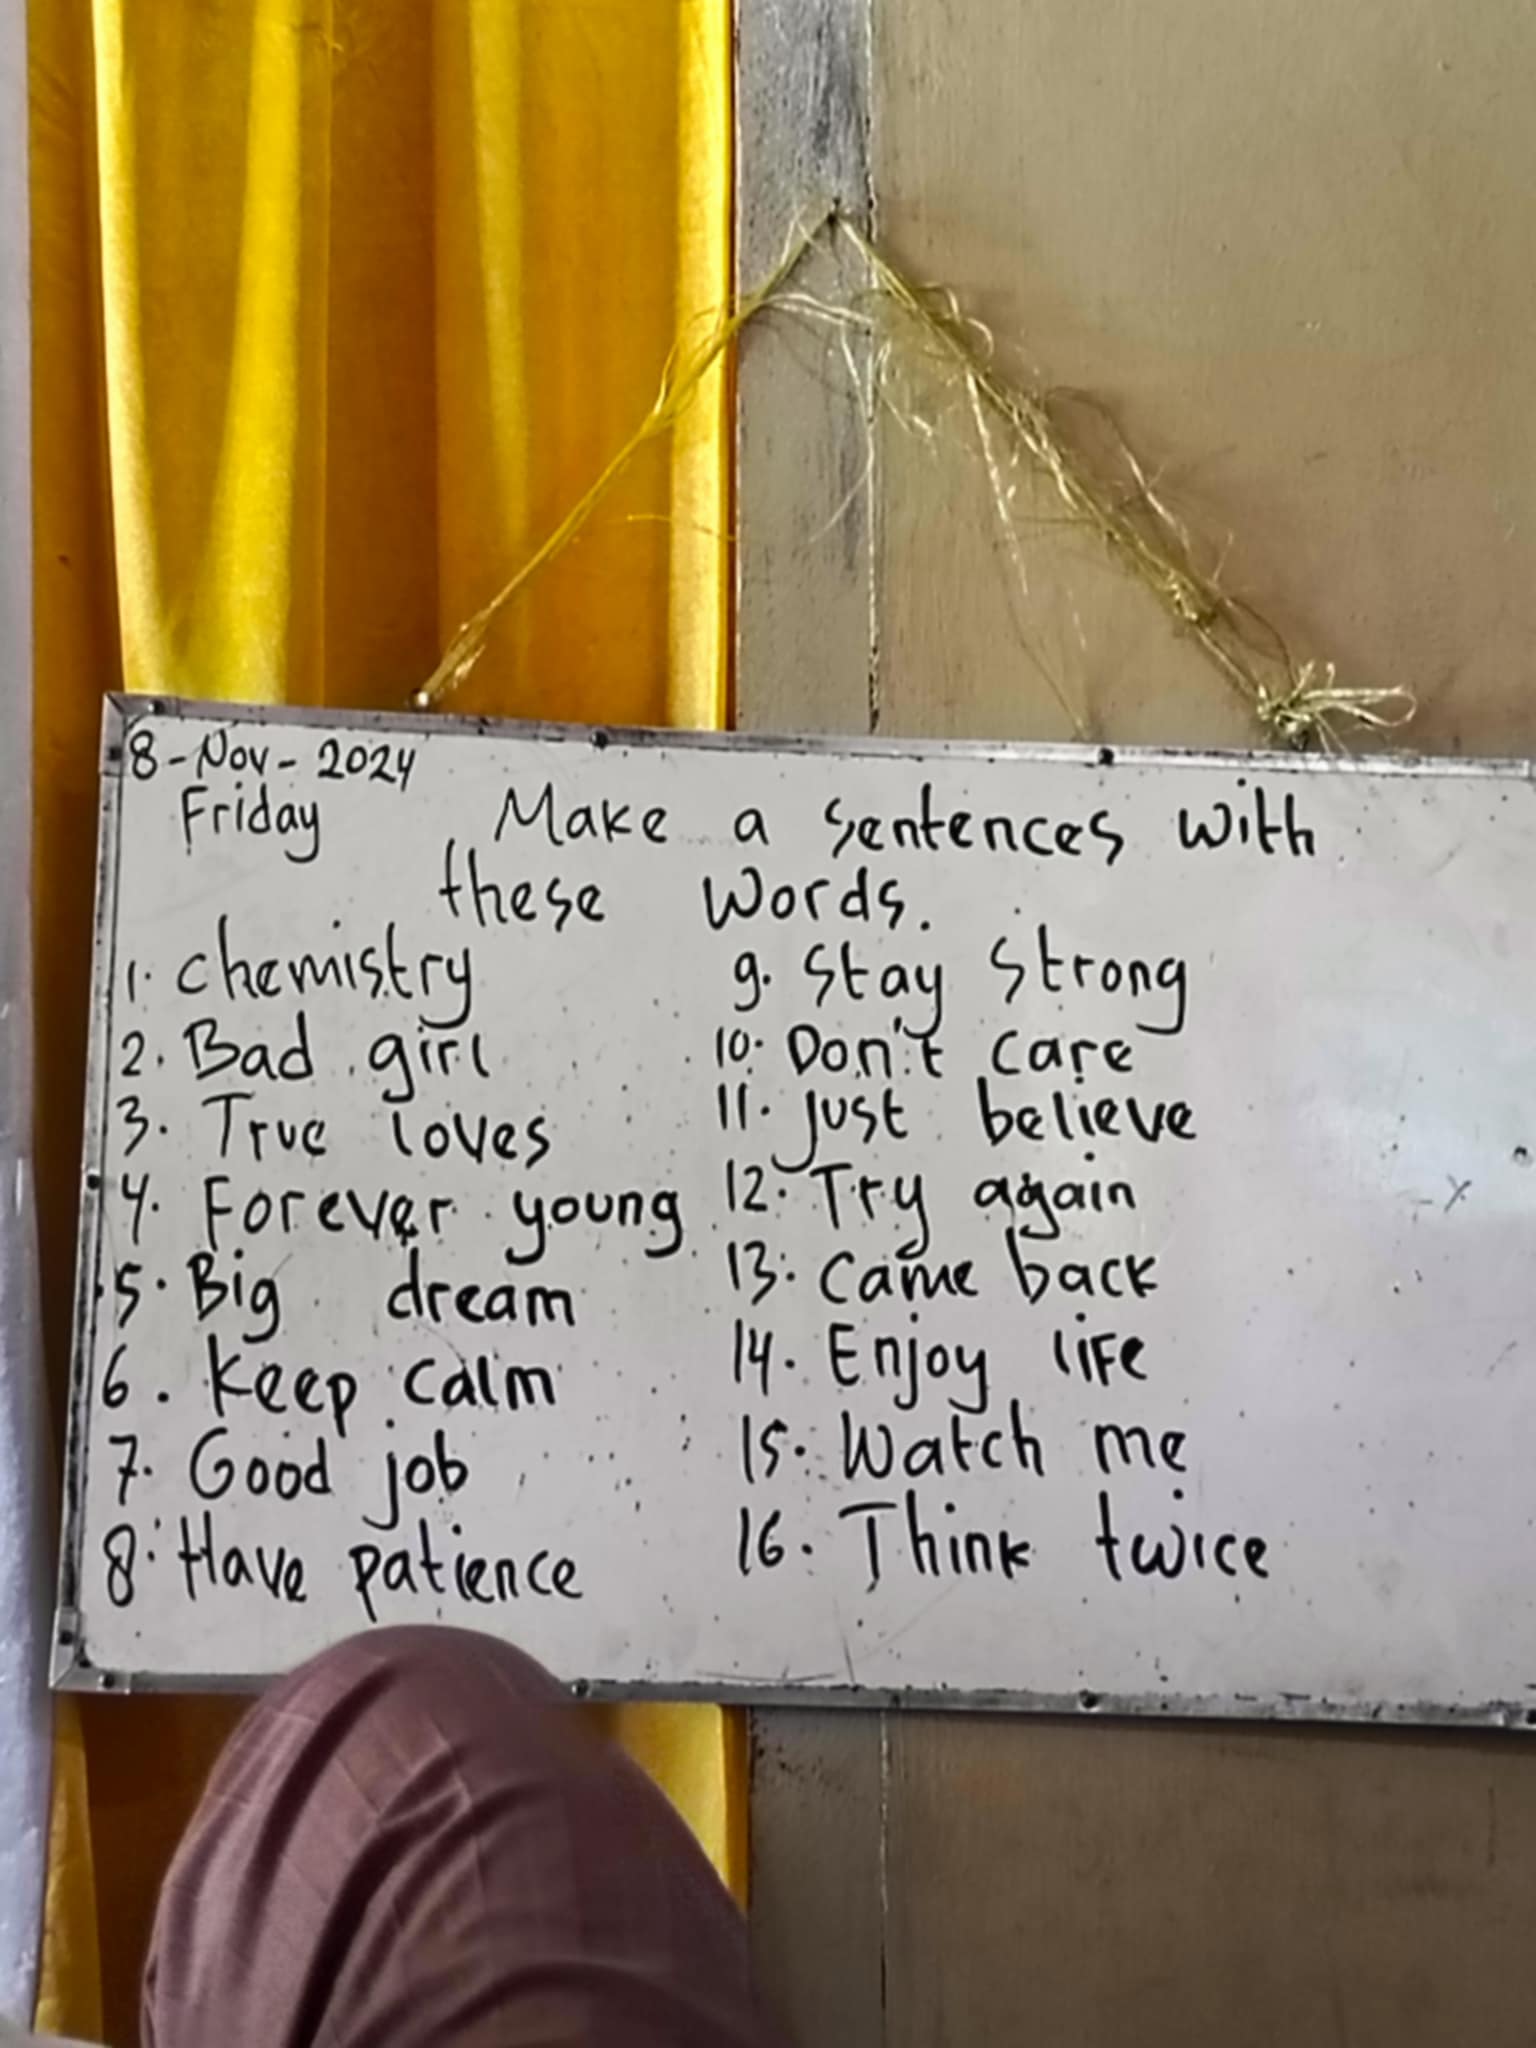 8-Nov-2024
Friday
Make a sentences with
these words.
1. chemistry
2. Bad girl
3. True loves
4. Forever young
5. Big dream
6. Keep calm
7. Good job
8. Have patience
9. Stay strong
10. Don't care
11. Just believe
12. Try again
13. Came back
14. Enjoy life
15. Watch me
16. Think twice